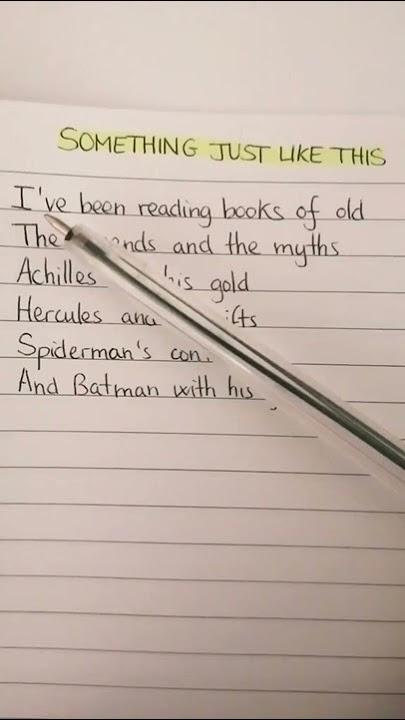 SOMETHING JUST LIKE THIS
I've been reading books of old
The and the myths
Achilles his gold
Hercules and
Spiderman's
And Batman with his